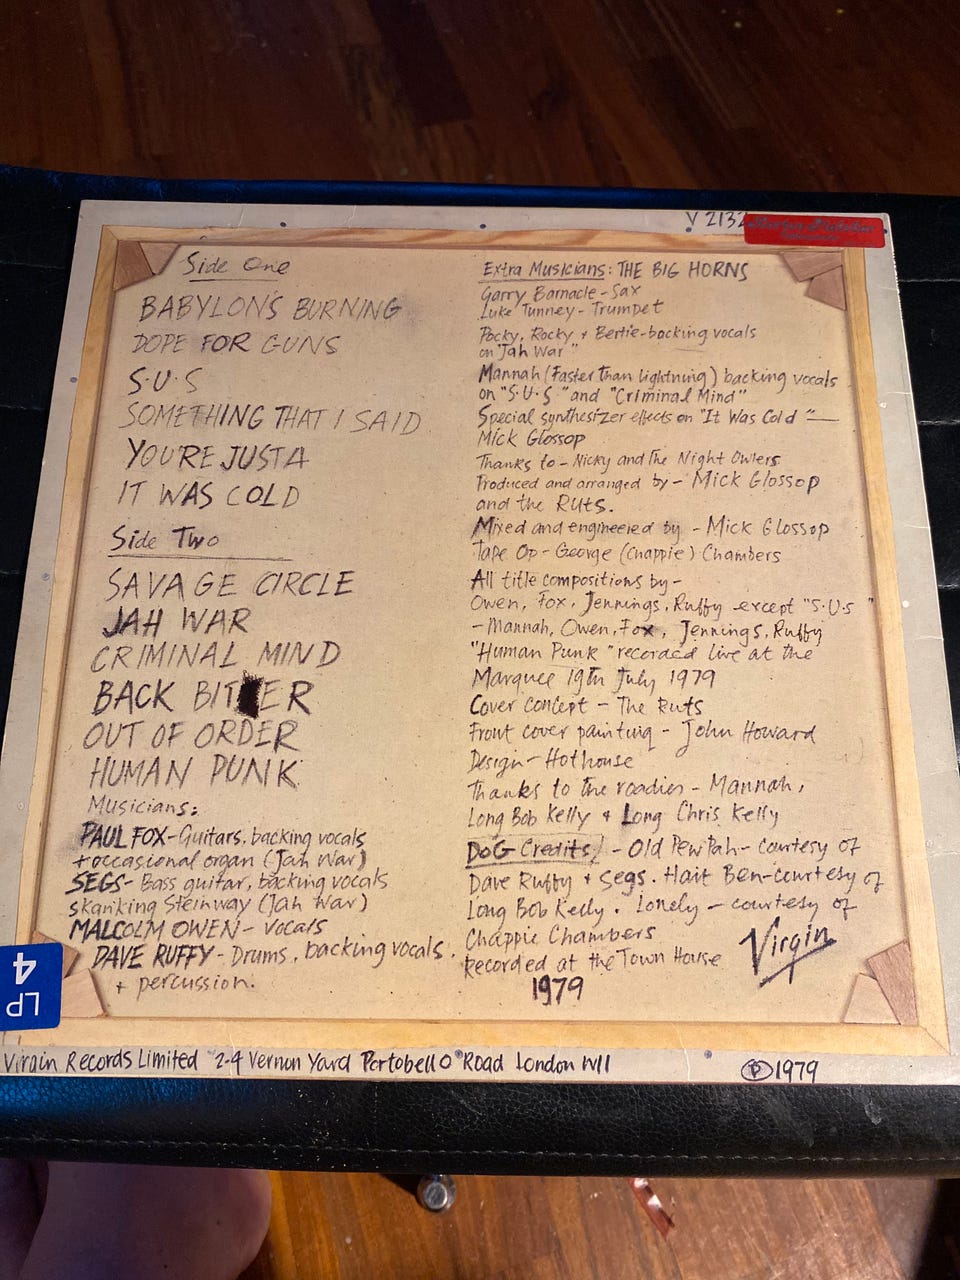 V 2132
Side One
BABYLON'S BURNING
DOPE FOR GUNS
S.U.S
SOMETHING THAT I SAID
YOU'RE JUST A
IT WAS COLD
Side Two
SAVAGE CIRCLE
JAH WAR
CRIMINAL MIND
BACK BITER
OUT OF ORDER
HUMAN PUNK
Musicians:
PAUL FOX-Guitars, backing vocals
+occasional organ (Jah War)
SEGS- Bass guitar, backing vocals
skanking Steinway (Jah War)
MALCOLM OWEN- vocals
DAVE RUFFY- Drums, backing vocals,
+ percussion.
Extra Musicians: THE BIG HORNS
Garry Barnacle - Sax
Luke Tunney - Trumpet
Pocky, Rocky + Bertie-backing vocals
on "Jah War"
Mannah (Faster than lightning) backing vocals
on "S.U.S" and "Criminal Mind"
Special synthesizer effects on "It Was Cold" —
Mick Glossop
Thanks to - Nicky and The Night Owlers
Produced and arranged by - Mick Glossop
and the Ruts.
Mixed and engineered by - Mick Glossop
Tape Op - George (Chappie) Chambers
All title compositions by -
Owen, Fox, Jennings, Ruffy except "S.U.S"
- Mannah, Owen, Fox, Jennings, Ruffy
"Human Punk" recorded live at the
Marquee 19th July 1979
Cover concept - The Ruts
Front cover painting - John Howard
Design - Hothouse
Thanks to the roadies - Mannah,
Long Bob Kelly + Long Chris Kelly
DOG Credits/ - Old Pew Pah - courtesy of
Dave Ruffy + Segs. Hait Ben-courtesy of
Long Bob Kelly. Lonely - courtesy of
Chappie Chambers
Recorded at the Town House
1979
Virgin
LP
4
Virgin Records Limited 2-4 Vernon Yard Portobello Road London W11
Ⓟ 1979